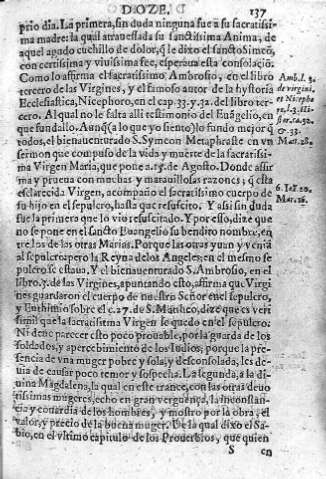 DOZE. 137
prio dia. La primera, sin duda ninguna fue a su sacratissi
ma madre: la qual atrauessada su sanctissima Anima, de
aquel agudo cuchillo de dolor, q̃ le dixo el sancto Simeõ,
con certissima y viuissima fee, esperaua esta consolaciõ.
Como lo affirma el sacratissimo Ambrosio, en el libro
tercero de las Virgines, y el famoso autor de la hystoria
Ecclesiastica, Nicephoro, en el cap. 33. y. 32. del libro ter-
cero. Al qual no le falta alli testimonio del Euãgelio, en
que fundallo. Aunq̃ (a lo que yo siento) lo fundo mejor q̃
todos, el bienauenturado S. Symeon Metaphraste en vn
sermon que compuso de la vida y muerte de la sacratissi
ma Virgen Maria, que pone a. 15. de Agosto. Donde assir
ma y prueua con muchas y marauillosas razones, q̃ esta
esclarecida Virgen, acompaño el sacratissimo cuerpo de
su hijo en el sepulcro, hasta que resuscito. Y assi sin duda
fue la primera que lo vio resuscitado. Y por esso, dize que
no se pone en el sancto Euangelio su bendito nombre, en
tre los de las otras Marias. Porque las otras yuan y veniã
al sepulcro pero la Reyna de los Angeles, en el mesmo se
pulcro se estaua. Y el bienauenturado S. Ambrosio, en el
libro. 3. de las Virgines, apuntando esto, affirma que Virgi
nes guardaron el cuerpo de nuestro Señor en el sepulcro,
y Euthimio sobre el c. 27. de S. Mattheo, dize que es veri
simil que la sacratissima Virgen se quedo en el sepulcro.
Ni deue parecer esto poco prouable, por la guarda de los
soldados, y apercebimiento de los Iudios, porque la pre-
sencia de vna muger pobre y sola, y desconsolada, les de-
uia de causar poco temor y sospecha. La segunda, a la di
uina Magdalena, la qual en este trance, con las otras deuo
tissimas mugeres, echo en gran verguença, la inconstan-
cia y couardia de los hombres, y mostro por la obra, el
valor, y precio de la buena muger. De la qual dixo el Sa-
bio, en el vltimo capitulo de los Prouerbios, que quien
S en
Amb. l. 3.
de virgini.
et Nicepho
ro, l. 3. Hi
stor. ca. 32.
& 33.
Mat. 28.
Mar. 16.